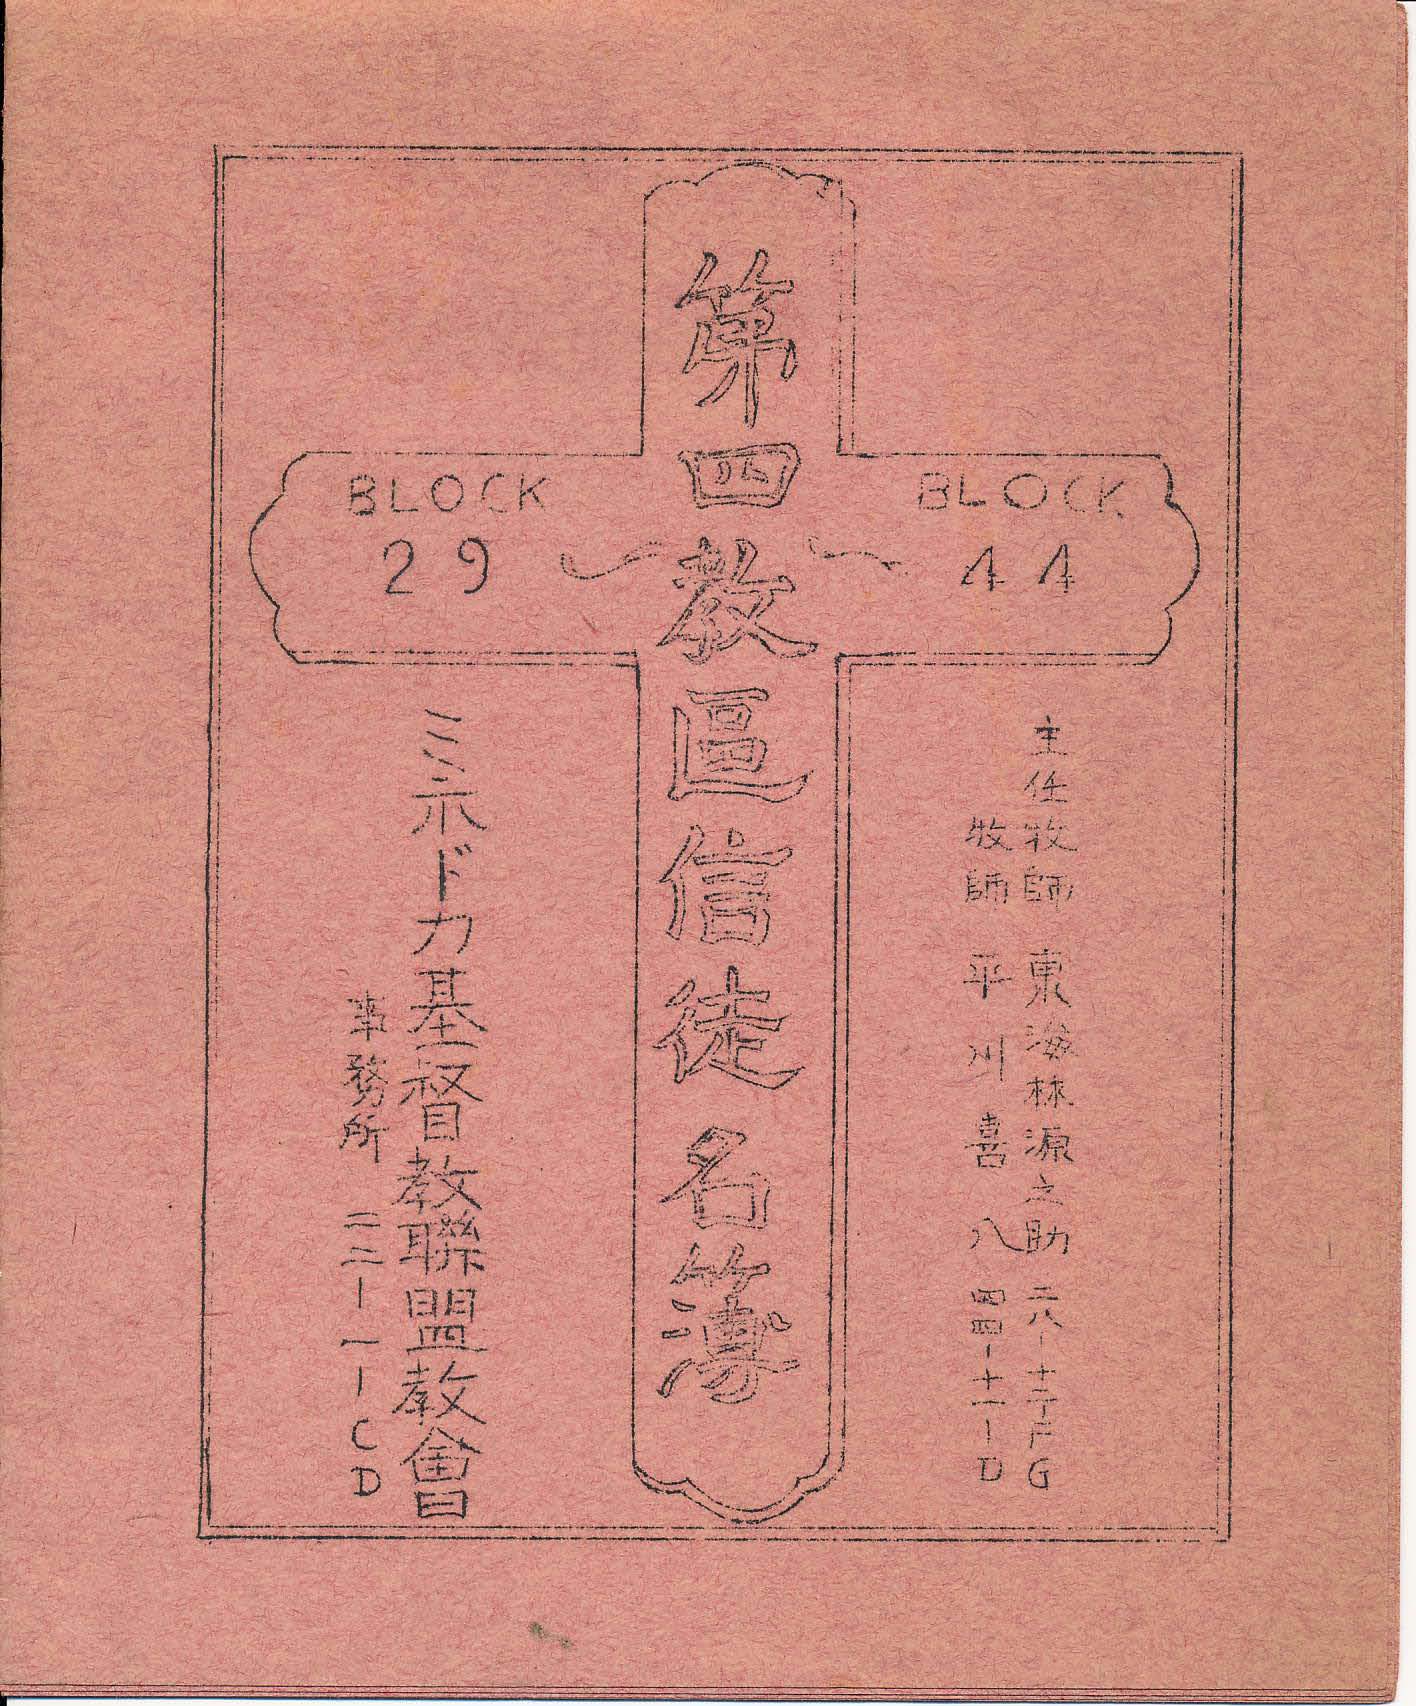 第四教區信徒名簿
BLOCK 29 〜
〜 BLOCK 44
主任牧師 東海林源之助 二八-十二-FG
牧師 平川喜八 四四-十一-D
ミネドカ基督教聯盟教會
事務所 二二-一-CD